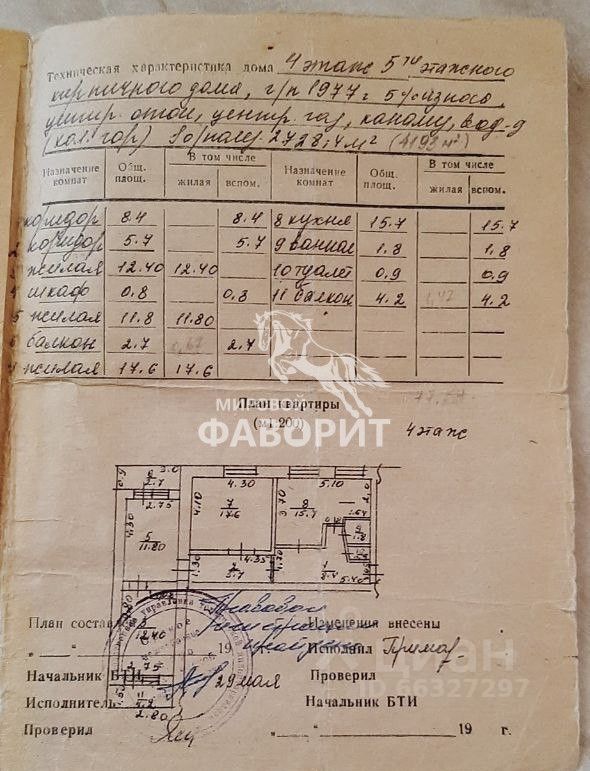 Техническая характеристика дома 4 этаж 5ти этажного
кирпичного дома, г/п 1977 г 5% износа,
центр. отоп, центр. газ, канализ, вод-д
(хол. гор) Sобполез 2728,4 м² (4193 м³)
Назначение комнат Общ. площ. В том числе жилая вспом. Назначение комнат Общ. площ. В том числе жилая вспом.
коридор 8.4 8.4 8 кухня 15.7 15.7
2 коридор 5.7 5.7 9 ванная 1.8 1.8
3 жилая 12.40 12.40 10 туалет 0.9 0.9
4 шкаф 0.8 0.8 11 балкон 4.2 4.2
5 жилая 11.8 11.80
6 балкон 2.7 2.7
7 жилая 17.6 17.6
План квартиры
(м1:200)
МИ
ФАВОРИТ
4 этаж
0.9 6 3.0
2.7
2.75
4.30
5
11.80
4.10
4.30
7
17.6
3.70
5.10
8
15.7
2.0
2.64
9
1.8
1.30
4.35
2
5.7
1
8.4
5.40
План состав
Изменения внесены
12.40
19
Исполнил Примах
2.75
Начальник БТИ
29 мая
Проверил
Исполнитель
11
4.2
2.80
Начальник БТИ
Проверил
" " 19 г.
циан
ID 66327297